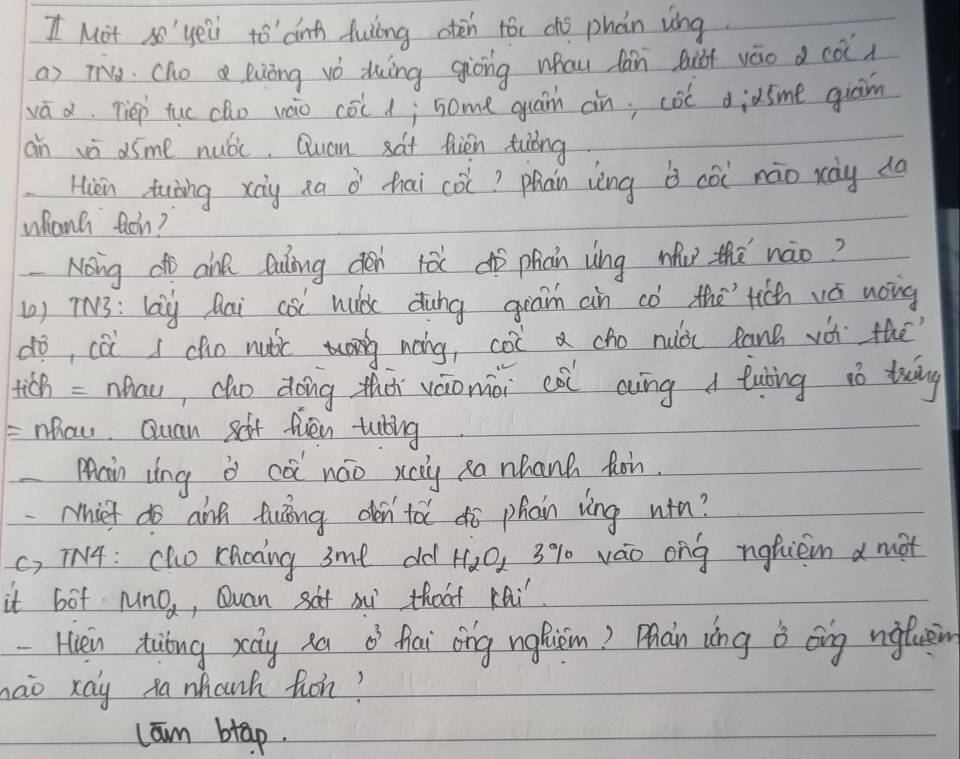 II Một số yếu tố ảnh hưởng đến tốc độ phản ứng
a) TN2. Cho 2 lượng vỏ trứng giống nhau lần lượt vào 2 cốc 1
và 2. Tiếp tục cho vào cốc 1; 50ml giấm ăn; cốc 2; 25ml giấm
ăn và 25ml nước. Quan sát hiện tượng
- Hiện tượng xảy ra ở hai cốc? phản ứng ở cốc nào xảy ra
nhanh hơn?
- Nồng độ ảnh hưởng đến tốc độ phản ứng như thế nào?
b) TN3: lấy hai cốc nước đựng giấm ăn có thể tích và nồng
độ, cốc 1 cho nước nóng, cốc 2 cho nước lạnh với thể
tích = nhau, cho đồng thời vào mỗi cốc cùng 1 lượng vỏ trứng
= nhau. Quan sát hiện tượng
- Phản ứng ở cốc nào xảy ra nhanh hơn.
- Nhiệt độ ảnh hưởng đến tốc độ phản ứng ntn?
c) TN4: Cho khoảng 3ml dd H₂O₂ 3% vào ống nghiệm 2 một
ít bột MnO₂, Quan sát sự thoát khí
- Hiện tượng xảy ra ở hai ống nghiệm? Phản ứng ở ống nghiệm
nào xảy ra nhanh hơn?
Làm btập.